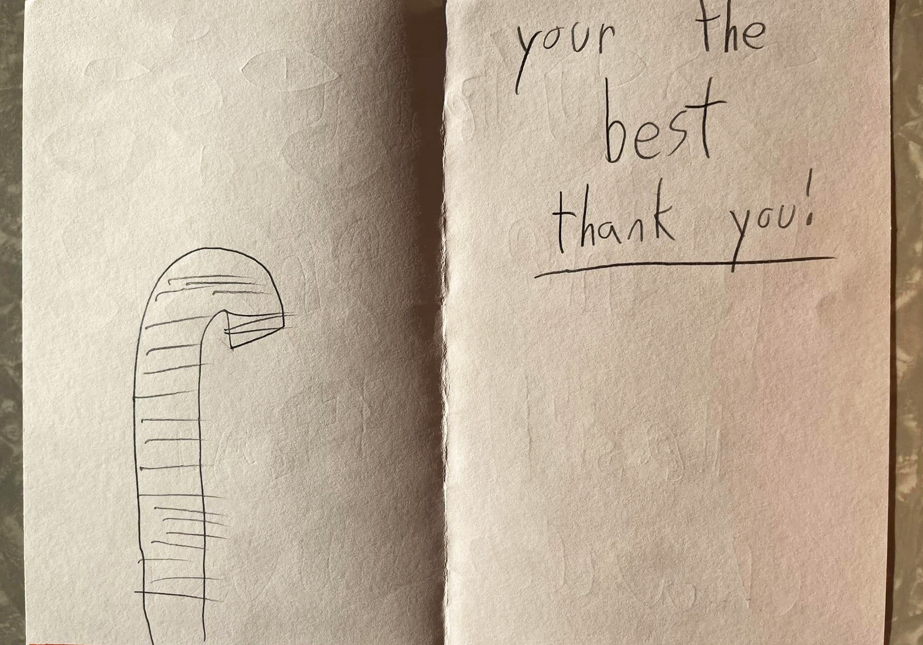 your the
best
thank you!